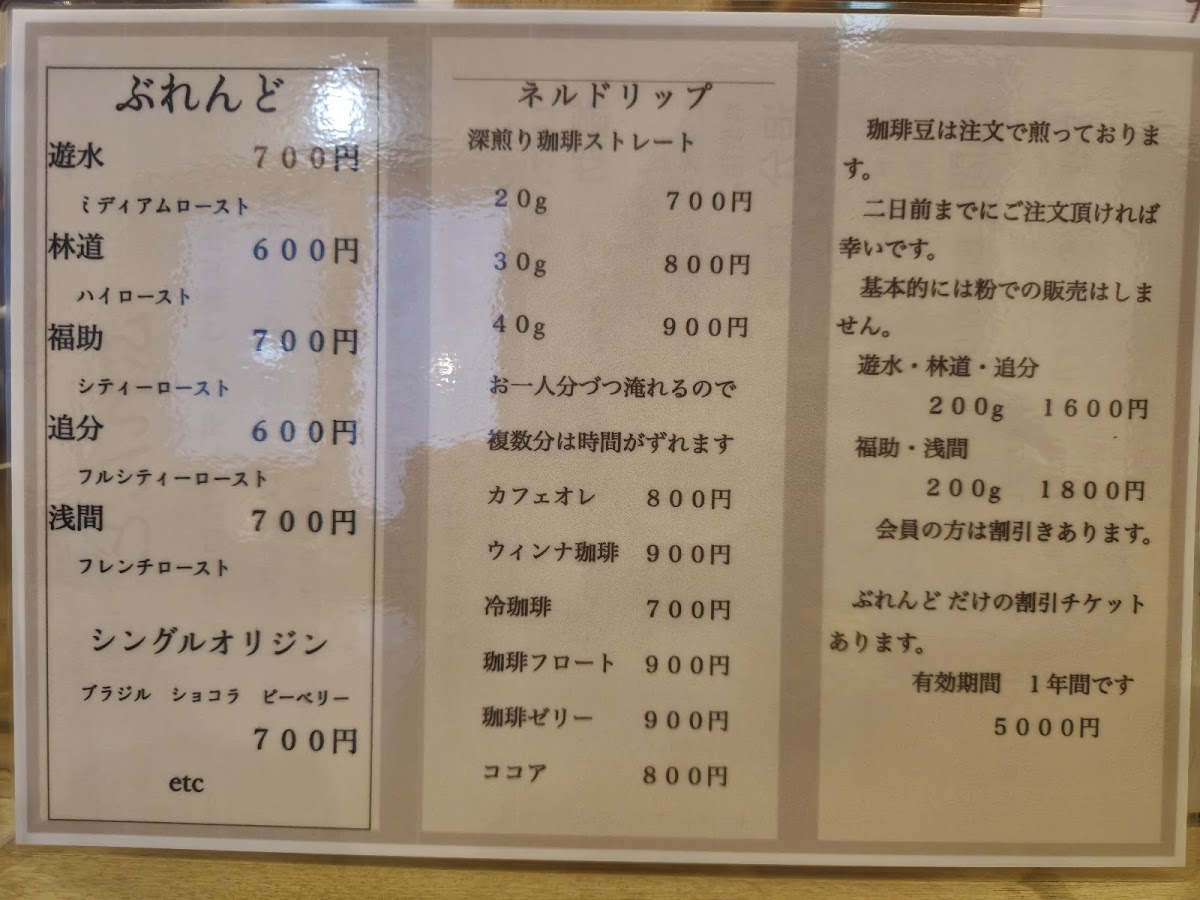 ぶれんど
遊水 700円
ミディアムロースト
林道 600円
ハイロースト
福助 700円
シティーロースト
追分 600円
フルシティーロースト
浅間 700円
フレンチロースト
シングルオリジン
ブラジル ショコラ ピーベリー
700円
etc
ネルドリップ
深煎り珈琲ストレート
20g 700円
30g 800円
40g 900円
お一人分づつ淹れるので
複数分は時間がずれます
カフェオレ 800円
ウィンナ珈琲 900円
冷珈琲 700円
珈琲フロート 900円
珈琲ゼリー 900円
ココア 800円
珈琲豆は注文で煎っておりま
す。
二日前までにご注文頂ければ
幸いです。
基本的には粉での販売はしま
せん。
遊水・林道・追分
200g 1600円
福助・浅間
200g 1800円
会員の方は割引きあります。
ぶれんど だけの割引チケット
あります。
有効期間 1年間です
5000円